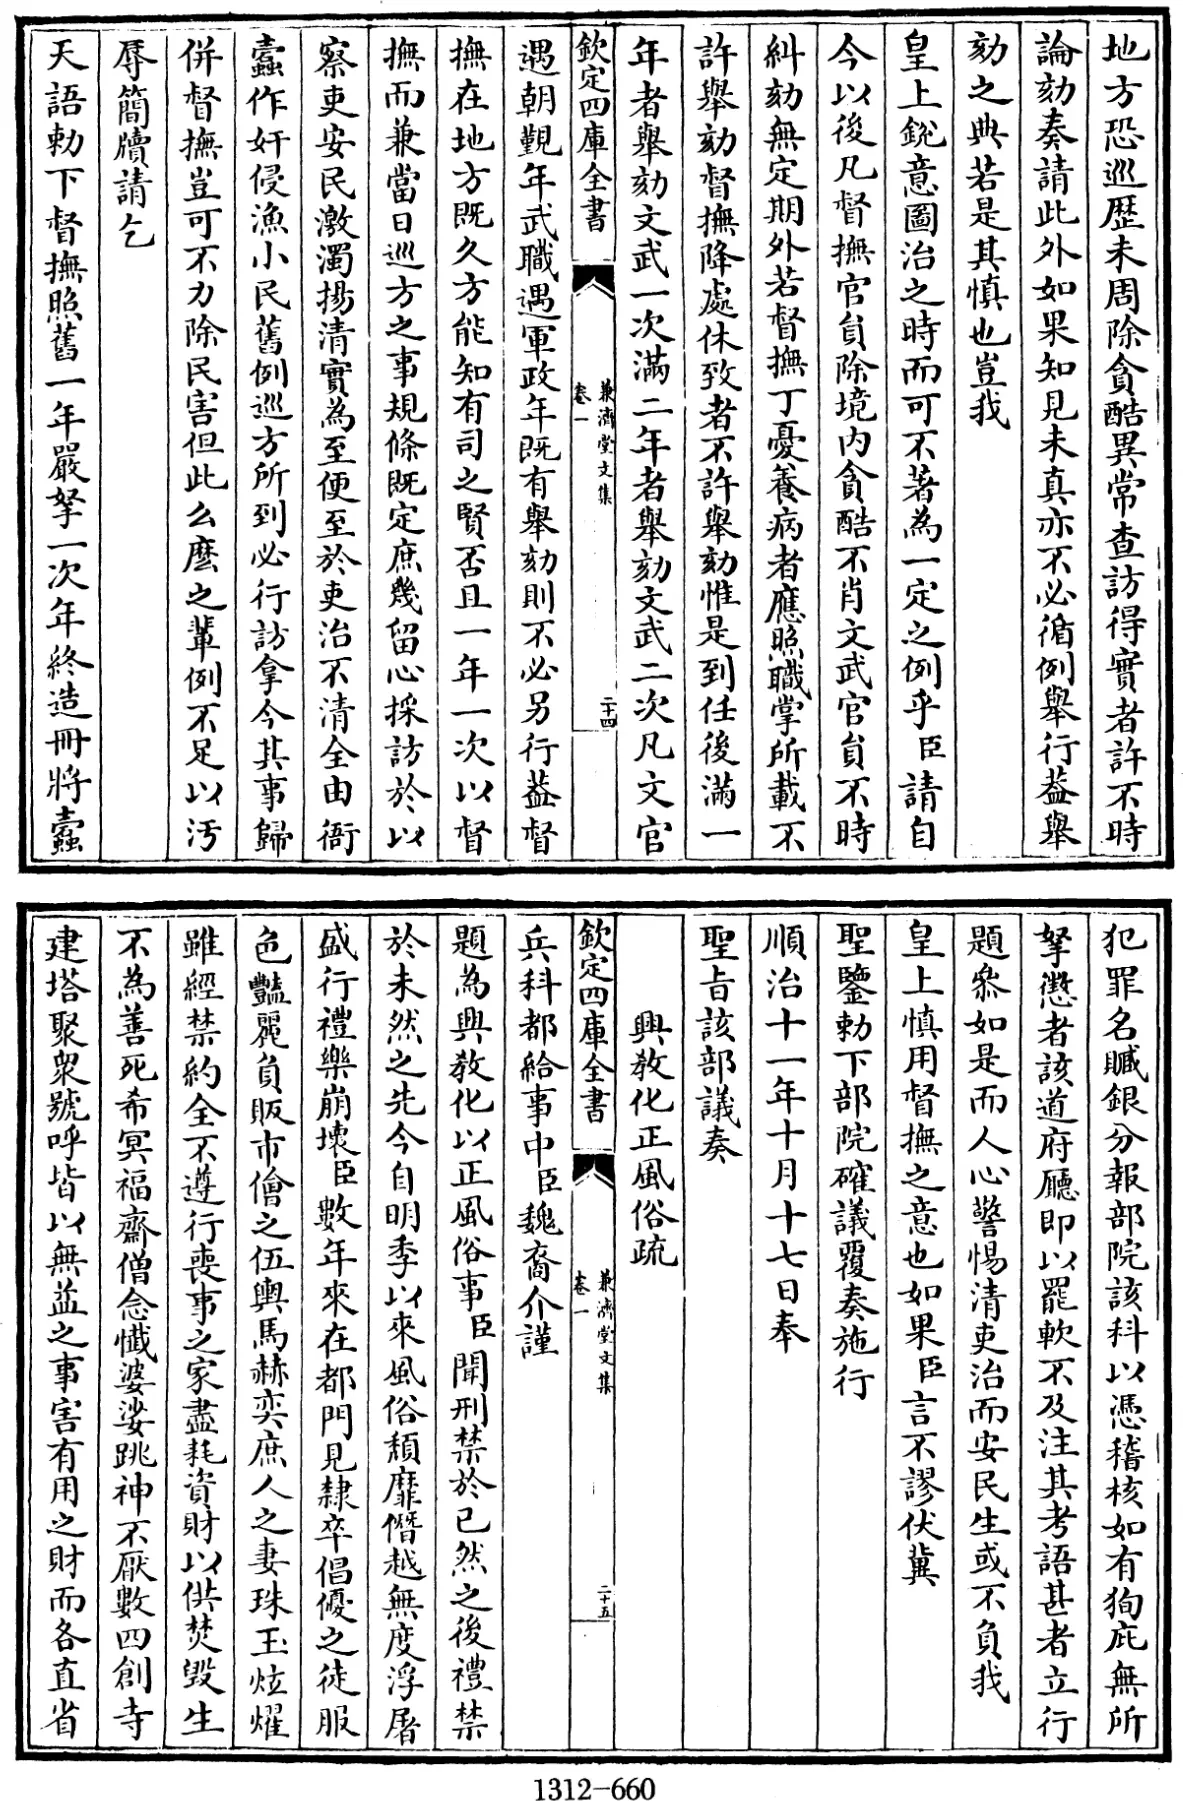 地方恐巡歷未周除貪酷異常查訪得實者許不時
論劾奏請此外如果知見未真亦不必循例舉行葢舉
劾之典若是其慎也豈我
皇上銳意圖治之時而可不著為一定之例乎臣請自
今以後凡督撫官員除境内貪酷不肖文武官員不時
糾劾無定期外若督撫丁憂養病者應照職掌所載不
許舉劾督撫降處休致者不許舉劾惟是到任後滿一
年者舉劾文武一次滿二年者舉劾文武二次凡文官
欽定四庫全書
兼濟堂文集
卷一
二十四
遇朝覲年武職遇軍政年既有舉劾則不必另行葢督
撫在地方既久方能知有司之賢否且一年一次以督
撫而兼當日巡方之事規條既定庶幾留心採訪於以
察吏安民激濁揚清實為至便至於吏治不清全由衙
蠧作奸侵漁小民舊例巡方所到必行訪拿今其事歸
併督撫豈可不力除民害但此么麽之輩例不足以汚
辱簡牘請乞
天語勅下督撫照舊一年嚴拏一次年終造冊將蠧
犯罪名贓銀分報部院該科以憑稽核如有狥庇無所
拏懲者該道府廳即以罷軟不及注其考語甚者立行
題叅如是而人心警惕清吏治而安民生或不負我
皇上慎用督撫之意也如果臣言不謬伏冀
聖鑒勅下部院確議覆奏施行
順治十一年十月十七日奉
聖旨該部議奏
興敎化正風俗疏
欽定四庫全書
兼濟堂文集
卷一
二十五
兵科都給事中臣魏裔介謹
題為興敎化以正風俗事臣聞刑禁於已然之後禮禁
於未然之先今自明季以來風俗頽靡僭越無度浮屠
盛行禮樂崩壞臣數年來在都門見隸卒倡優之徒服
色豔麗負販市儈之伍輿馬赫奕庶人之妻珠玉炫燿
雖經禁約全不遵行喪事之家盡耗資財以供焚毀生
不為善死希冥福齋僧念懺婆娑跳神不厭數四創寺
建塔聚衆號呼皆以無益之事害有用之財而各直省
1312-660